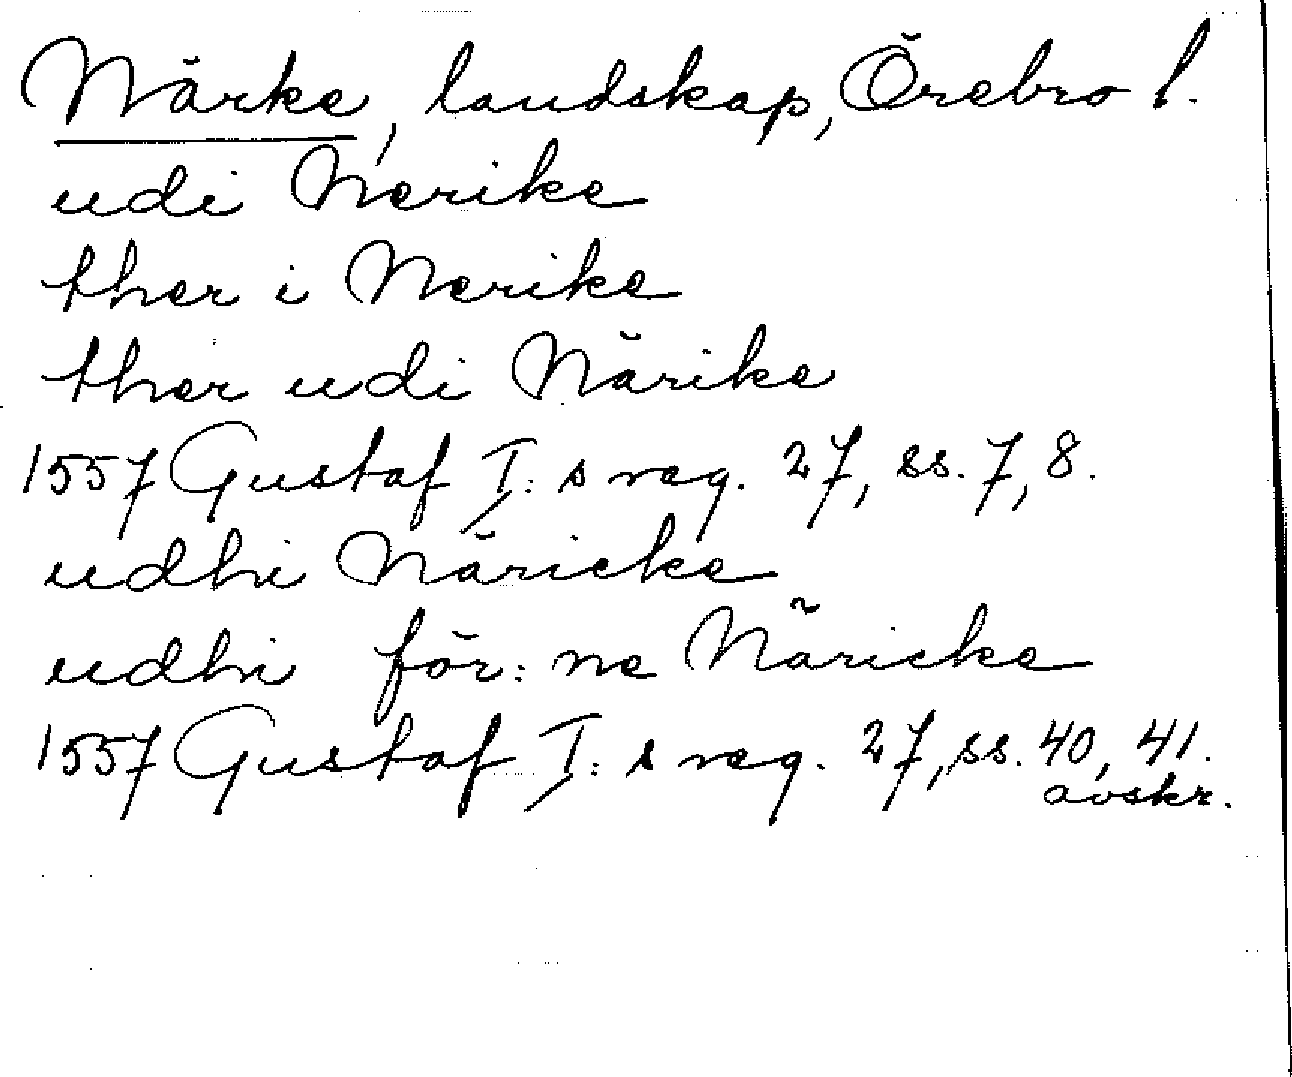 Närke, landskap, Örebro l.
udi Nerike
ther i Nerike
ther udi Närike
1557 Gustaf I: s reg. 27, ss. 7, 8.
udhi Näricke
udhi för: ne Näricke
1557 Gustaf I: s reg. 27, ss. 40, 41.
avskr.